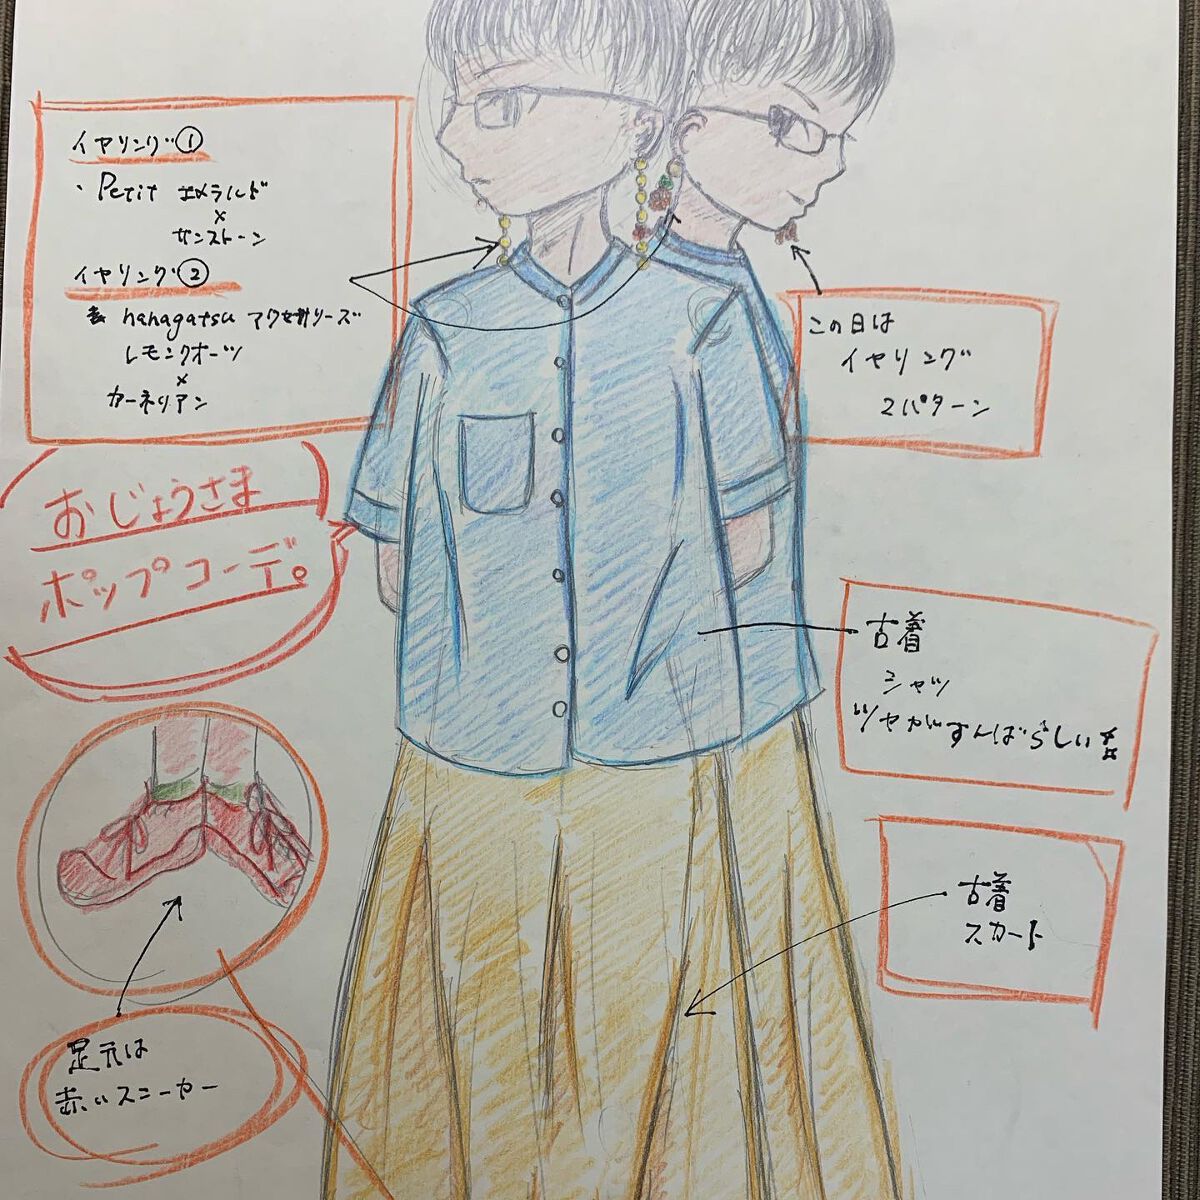 イヤリング①
・Petit エメラルド
×
サンストーン
イヤリング②
hanagatsu アクセサリーズ
レモンクオーツ
×
カーネリアン
この日は
イヤリング
2パターン
おじょうさま
ポップコーデ。
古着
シャツ
ツヤがすんばらしい
古着
スカート
足元は
赤いスニーカー